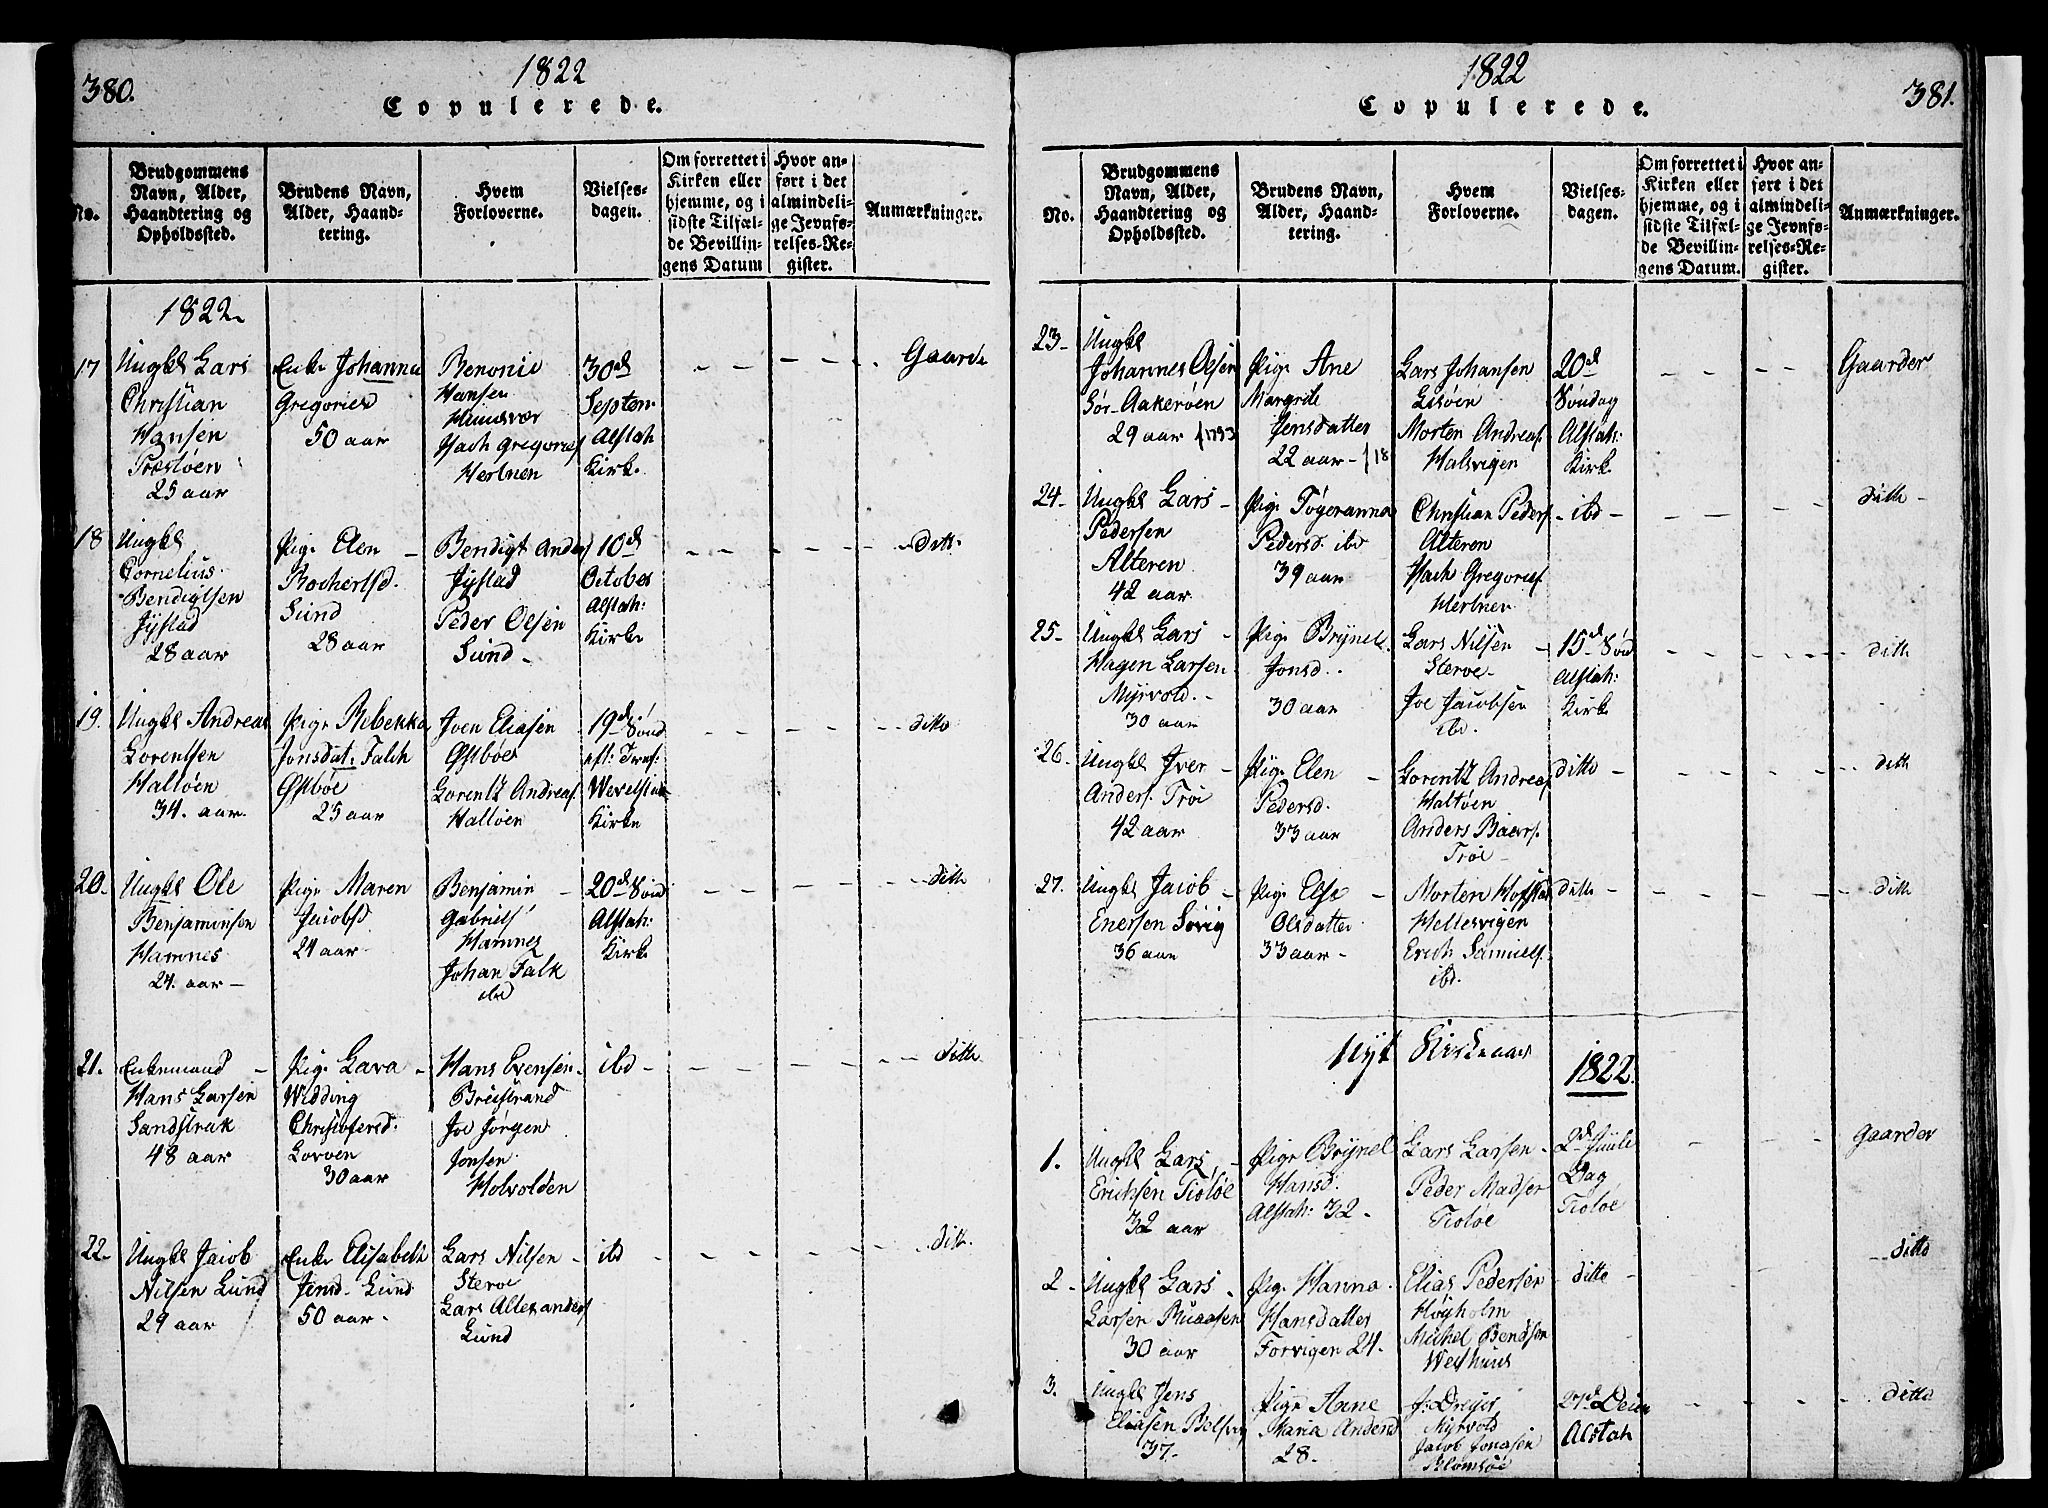 380.
1822
Copulerede.
No.
Brudgommens Navn, Alder, Haandtering og Opholdssted.
Brudens Navn, Alder, Haandtering.
Hvem Forloverne.
Vielsesdagen.
Om forrettet i Kirken eller hjemme, og i sidste Tilfælde Bevillingens Datum
Hvor anført i det almindelige Jevnførelses-Register.
Anmærkninger.
1822
17
Ungkl Lars
Christian
Hansen
25 aar
Enke Johanna
Gregoriesd
50 aar
Benonie
Hansen
Isach Gregories
Herbnen
30d
Septem
Alstah:
Kirke.
Gaarde
18
Ungkl
Cornelius
Bendigtsen
28 aar
Pige Elen
Bochertsd.
Sund
28 aar
Bendigt Anders
Peder Olsen
Sund
10d
October
Alstah:
Kirke
ditto
19.
Ungkl Andreas
Lorentsen
Haltøen
34. aar.
Pige Rebekka
Jonsdat: Falch
Østbøe
25 aar
Iven Eliasen
Østbøe
Lorentz Andreas.
Haltøen
19d Sønd
eft: Tref:
Kirke
ditto
20.
Ungkl Ole
Benjaminsen
Hamnes
24. aar
Pige Maren
Jacobsd
24 aar
Benjamin
Gabriels
Hamnes
Johan Falk
ibd
20d Sønd
Alstah:
Kirke
ditto
21.
Enkemand
Hans Larsen
Sandstrak
48 aar
Pige Lava
Widding
Christofersd.
Lorven
30 aar
Hans Evensen
Breistrand
Joe Jørgen
Jonsen
Holvolden
ibd
ditto
22
Ungkl Jacob
Nilsen Lund
29 aar
Enke Elisabeth
Jensd Lund
50 aar
Lars Nilsen
Steroe
Lars Allexanders
Lund
ibd
ditto
1822
381.
Copulerede.
No.
Brudgommens Navn, Alder, Haandtering og Opholdssted.
Brudens Navn, Alder, Haandtering.
Hvem Forloverne.
Vielsesdagen.
Om forrettet i Kirken eller hjemme, og i sidste Tilfælde Bevillingens Datum.
Hvor anført i det almindelige Jevnførelses-Register.
Anmærkninger.
23
Ungkl
Johannes Olsen
Sør-Aakerøen
29 aar f 1793
Pige Ane
Margrete
Jensdatter
22 aar f 18
Lars Johansen
Morten Andreas.
Halsvigen
20d
Søndag
Alstah:
Kirke
Gaarder
24.
Ungkl Lars
Pedersen
Alteren
42 aar
Pige Tøgeranna
Pedersd. ibd
39 aar
Christian Peders
Alteren
Isach Gregories
Herbnen
ibd
ditto
25
Ungkl Lars
Hagen Larsen
Myrvold.
30 aar
Pige Brynel
Jonsd.
30 aar
Lars Nilsen
Steroe
Joe Jacobsen
ibd.
15d Sønd
Alstah:
Kirke
ditto
26.
Ungkl Iver
Anders. Trøe
42 aar
Pige Elen
Pedersd.
33 aar
Lorentz Andreas
Haltøen
Anders Baars.
Trøe
ditto
ditto
27.
Ungkl Jacob
Enersen Søvig
36 aar
Pige Else
Olsdatter
33 aar
Morten
Hellesvigen
Erich Samuels.
ibd.
ditto
ditto
Nyt Kirkeaar
1822
1.
Ungkl Lars
Erichsen Tiøtøe
32 aar
Pige Brynel
Hansd.
Alstah: 32
Lars Larsen
Peder Madsen
Tiøtøe
2d Juule
Dag
Tiøtøe
Gaarder
2
Ungkl Lars
Larsen
30 aar
Pige Hanna
Hansdatter
Forvigen 24.
Elias Pedersen
Høyholm
Michel Bendsen
ditto
ditto
3.
Ungkl Jens
Eliasen
37.
Pige Anne
Maria Andersd
28.
Myrvold
Jacob Jonasen
Alstah
ditto